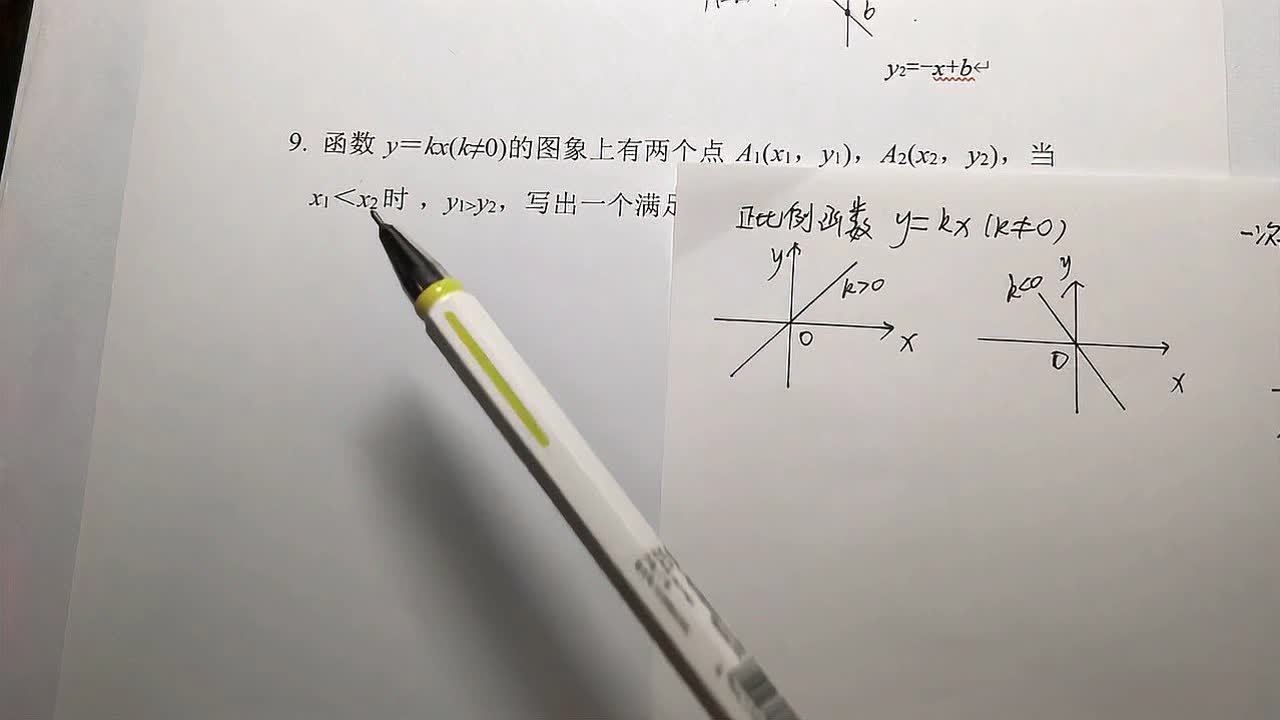 b
y₂=-x+b↵
9. 函数 y＝kx(k≠0)的图象上有两个点 A₁(x₁，y₁)，A₂(x₂，y₂)，当
x₁＜x₂时，y₁>y₂，写出一个满足
正比例函数 y=kx (k≠0)
一次
y
k>0
O
x
y
k<0
O
x